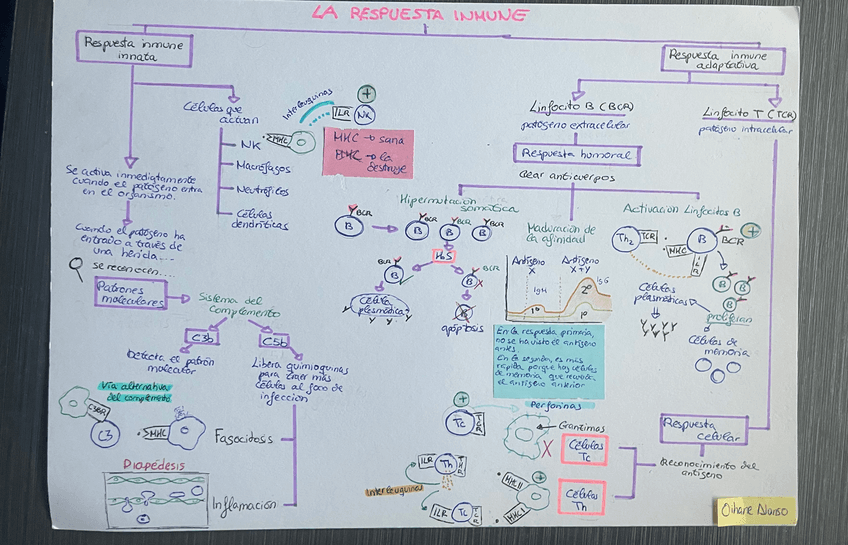 LA RESPUESTA INMUNE
Respuesta inmune
innata
Se activa inmediatamente
cuando el patógeno entra
en el organismo.
Cuando el patógeno ha
entrado a través de
una herida...
se reconocen....
Patrones
moleculares
Sistema del
complemento
C3b
C5b
Detecta el patrón
molecular
Libera quimioquinas
para traer más
células al foco de
infección
Vía alternativa
del complemento
C3BR
C3
MHC
Fagocitosis
Diapédesis
Inflamación
Células que
activan
NK
Macrófagos
Neutrófilos
Células
dendríticas
Interleuquinas
ILR
NK
+
MHC
MHC → sana
MHC → la
destruye
Respuesta inmune
adaptativa
Linfocito B (BCR)
patógeno extracelular
Respuesta humoral
crear anticuerpos
Hipermutación
somática
B
BCR
B
BCR
B
BCR
B
BCR
HS
BCR
B
BCR
B
Célula
plasmática
B
apoptosis
Maduración de
la afinidad
Antígeno
X
Antígeno
X+Y
IgM
IgG
1º
2º
1º
En la respuesta primaria,
no se ha visto el antígeno
antes
En la segunda, es más
rápida, porque hay células
de memoria que recuerda
el antígeno anterior
Activación Linfocitos B
Th2
TCR
MHC
B
BCR
+
ILR
B
B
B
Células
plasmáticas
proliferan
Células de
memoria
Linfocito T (TCR)
patógeno intracelular
Respuesta
celular
Reconocimiento del
antígeno
Perforinas
+
Tc
TCR
Granzimas
X
Células
Tc
ILR
Th
TCR
Interleuquinas
ILR
Tc
TCR
MHC II
+
MHC I
Células
Th
Oihane Alonso